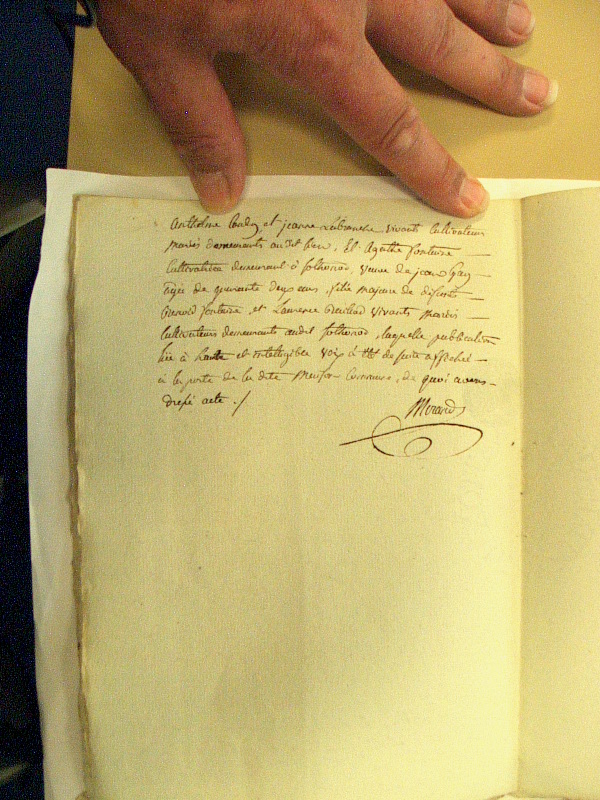 Anthelme Coudy, et jeanne Labranche vivants Cultivateurs
mariés demeurants au dit lieu, Et Agathe fontaine
Cultivatrice demeurant à Sothonod, veuve de jean Gay
agée de quarante deux ans, fille majeure de défunts
fontaine, et Laurence vivants mariés
Cultivateurs demeurants audit Sothonod, laquelle publication
lue à haute et intelligible voix à été de suite affiché
à la porte de la dite Maison Commune, de quoi avons
dressé acte ./
Morard